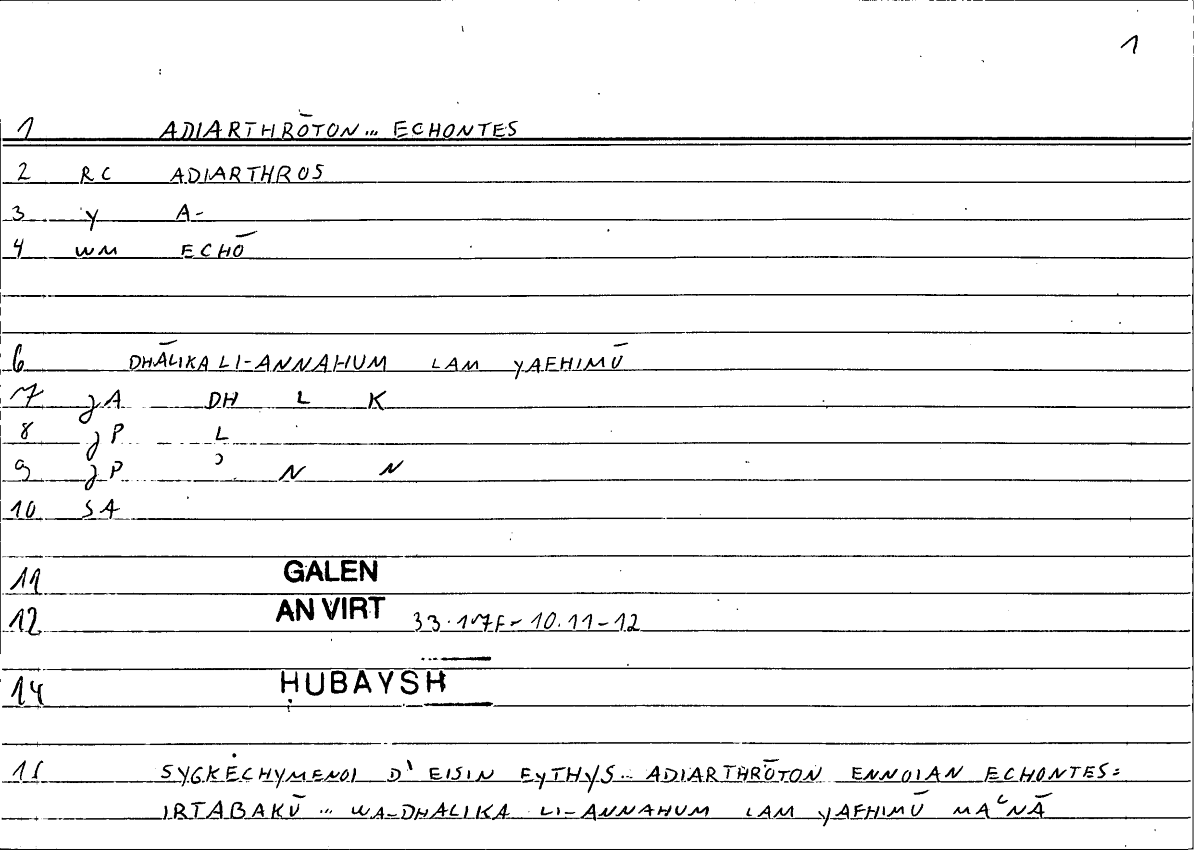 1
1 ADIARTHRŌTON... ECHONTES
2 RC ADIARTHROS
3 y A-
4 WM ECHŌ
6 DHĀLIKA LI-ANNAHUM LAM YAFHIMŪ
7 jA DH L K
8 jP L
9 jP ʾ N N
10 SA
11 GALEN
12 AN VIRT 33.17F - 10.11-12
14 HUBAYSH
15 SYGKEĊHYMENOI D' EISIN EyTHyS... ADIARTHRŌTON ENNOIAN ECHONTES:
IRTABAKŪ ... WA-DHALIKA LI-ANNAHUM LAM YAFHIMŪ MAʿNĀ